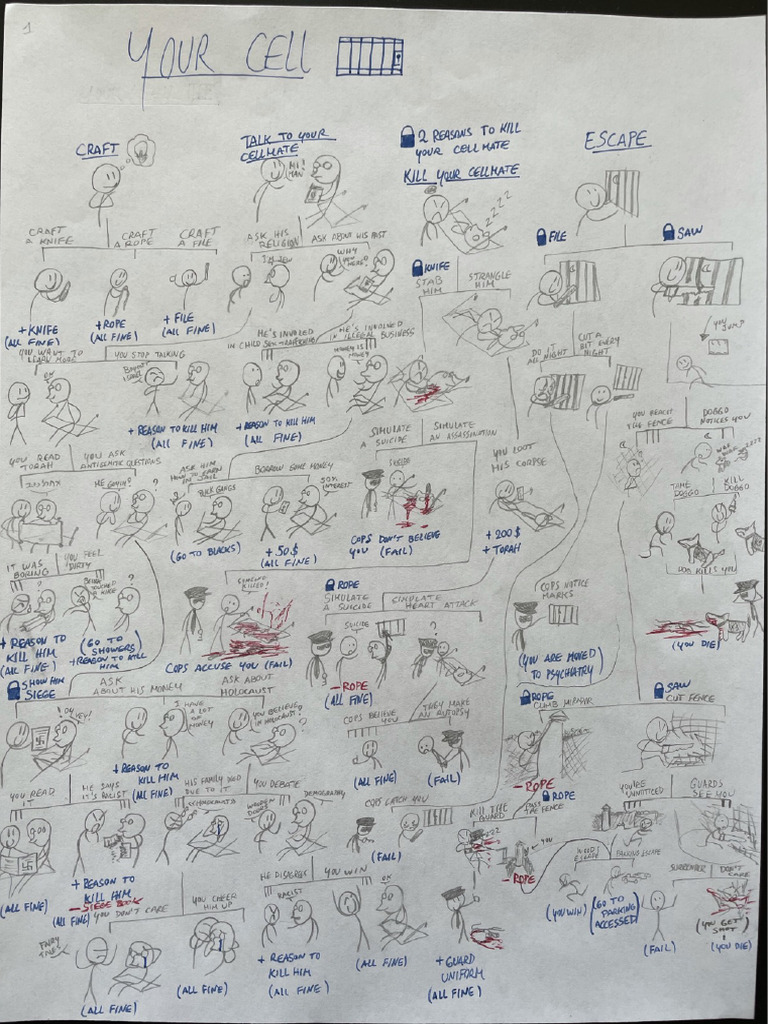 1
YOUR CELL
CRAFT
TALK TO YOUR
CELLMATE
2 REASONS TO KILL
YOUR CELLMATE
KILL YOUR CELLMATE
ESCAPE
HI!
MAN
ZZZZ
CRAFT
A KNIFE
CRAFT
A ROPE
CRAFT
A FILE
ASK HIS
RELIGION
ASK ABOUT HIS PAST
KNIFE
STAB
HIM
STRANGLE
HIM
FILE
SAW
WHY
YOU
HERE?
+ KNIFE
(ALL FINE)
+ ROPE
(ALL FINE)
+ FILE
(ALL FINE)
YOU JUMP
YOU WANT TO
LEARN MORE
YOU STOP TALKING
HE'S INVOLVED
IN CHILD
HE'S INVOLVED
IN ILLEGAL BUSINESS
DO IT
ALL NIGHT
CUT A
BIT EVERY
NIGHT
OK
MONEY IS
MONEY
+ REASON TO KILL HIM
(ALL FINE)
+ REASON TO KILL HIM
(ALL FINE)
SIMULATE
A SUICIDE
SIMULATE
AN ASSASSINATION
YOU REACH
THE FENCE
DOGGO
NOTICES YOU
YOU READ
TORAH
YOU ASK
ANTISEMITIC QUESTIONS
ASK HIM
HOW TO EARN
IN JAIL
BORROW SOME MONEY
YOU LOOT
HIS CORPSE
TAME
DOGGO
KILL
DOGGO
BLACK GANGS
50%
INTEREST
SUICIDE
(GO TO BLACKS)
+ 50$
(ALL FINE)
COPS DON'T BELIEVE
YOU (FAIL)
+ 200$
+ TORAH
DOG KILLS YOU
IT WAS
BORING
YOU FEEL
DIRTY
ROPE
SIMULATE
A SUICIDE
SIMULATE
HEART ATTACK
COPS NOTICE
MARKS
SUICIDE
+ REASON TO
KILL HIM
(ALL FINE)
(GO TO
SHOWERS)
+ REASON TO KILL
HIM
COPS ACCUSE YOU (FAIL)
- ROPE
(ALL FINE)
(YOU ARE MOVED
TO PSYCHIATRY)
(YOU DIE)
SHOW HIM
SIEGE
ASK
ABOUT HIS MONEY
ASK ABOUT
HOLOCAUST
COPS BELIEVE
YOU
THEY MAKE
AN AUTOPSY
ROPE
CLIMB
SAW
CUT FENCE
OY
VEY!
I HAVE
A LOT OF
MONEY
YOU BELIEVE
IN HOLOCAUST?
+ REASON TO
KILL HIM
(ALL FINE)
(ALL FINE)
(FAIL)
- ROPE
YOU READ
IT
HE SAYS
IT'S RACIST
HIS FAMILY DIED
DUE TO IT
YOU DEBATE
COPS CATCH YOU
KILL THE
GUARD
ROPE
PASS
THE FENCE
YOU'RE
UNNOTICED
GUARDS
SEE YOU
WOODEN
DOORS
DEMOGRAPHY
YOU
(FAIL)
- ROPE
WOODS
ESCAPE
PARKING ESCAPE
SURRENDER
DON'T
CARE
(ALL FINE)
+ REASON TO
KILL HIM
- SIEGE BOOK
(ALL FINE)
YOU DON'T CARE
YOU CHEER
HIM UP
HE DISAGREES
YOU WIN
RACIST
OK
(YOU WIN)
(GO TO
PARKING
ACCESSED)
(FAIL)
(YOU GET
SHOT)
(YOU DIE)
FAIRY
TALES
(ALL FINE)
(ALL FINE)
+ REASON TO
KILL HIM
(ALL FINE)
(ALL FINE)
+ GUARD
UNIFORM
(ALL FINE)